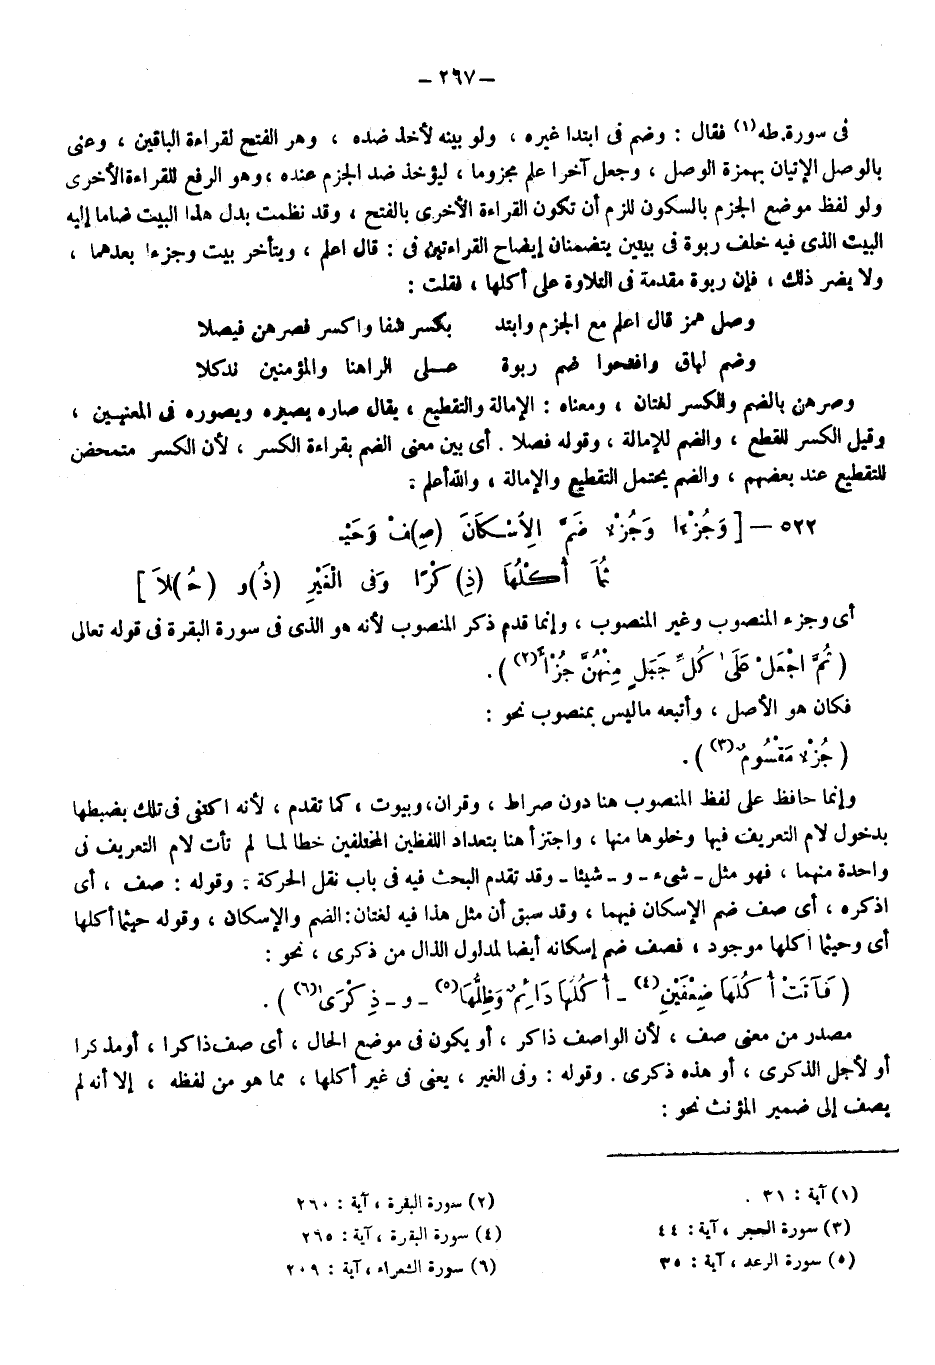 – ٢٦٧ –
فى سورة طه(١) فقال : وضم فى ابتدا غيره ، ولو بينه لأخذ ضده ، وهر الفتح لقراءة الباقين ، وعنى
بالوصل الإتيان بهمزة الوصل ، وجعل آخرا علم مجزوما ، ليؤخذ ضد الجزم عنده ، وهو الرفع للقراءة الأخرى
ولو لفظ موضع الجزم بالسكون للزم أن تكون القراءة الأخرى بالفتح ، وقد نظمت بدل هذا البيت ضاما إليه
البيت الذى فيه خلف ربوة فى بيتين يتضمنان إيضاح القراءتين فى : قال اعلم ، ويتأخر بيت وجزءا بعدهما ،
ولا يضر ذلك ، فإن ربوة مقدمة فى التلاوة على أكلها ، فقلت :
وصل همز قال اعلم مع الجزم وابتد بكسر شفا واكسر فصرهن فيصلا
وضم لباق وافتحوا ضم ربوة عـلى الراهنا والمؤمنين ندكلا
وصرهن بالضم والكسر لغتان ، ومعناه : الإمالة والتقطيع ، يقال صاره يصيره ويصوره فى المعنيين ،
وقيل الكسر للقطع ، والضم للإمالة ، وقوله فصلا . أى بين معنى الضم بقراءة الكسر ، لأن الكسر متمحض
للتقطيع عند بعضهم ، والضم يحتمل التقطيع والإمالة ، والله أعلم :
٥٢٢ – [ وَجُزْءًا وَجُزْءٌ ضَمَّ الِاسْكَانَ (صِ)فْ وَحَيْـ
ثُمَا أُكْلُهَا (ذِ)كْرًا وَفى الْغَيْرِ (ذُ)و (حُ)لاَ ]
أى وجزء المنصوب وغير المنصوب ، وإنما قدم ذكر المنصوب لأنه هو الذى فى سورة البقرة فى قوله تعالى
( ثُمَّ اجْعَلْ عَلَى كُلِّ جَبَلٍ مِنْهُنَّ جُزْأً(٢) ) .
فكان هو الأصل ، وأتبعه ماليس بمنصوب نحو :
( جُزْءٌ مَقْسُومٌ(٣) ) .
وإنما حافظ على لفظ المنصوب هنا دون صراط ، وقران، وبيوت ، كما تقدم ، لأنه اكتفى فى تلك بضبطها
بدخول لام التعريف فيها وخلوها منها ، واجتزأ هنا بتعداد اللفظين المختلفين خطا لمـا لم تأت لام التعريف فى
واحدة منهما ، فهو مثل ــ شىء ــ و ــ شيئا ــ وقد تقدم البحث فيه فى باب نقل الحركة : وقوله : صف ، أى
اذكره ، أى صف ضم الإسكان فيهما ، وقد سبق أن مثل هذا فيه لغتان: الضم والإسكان ، وقوله حيثما أكلها
أى وحيثما أكلها موجود ، فصف ضم إسكانه أيضا لمدلول الذال من ذكرى ، نحو :
( فَآتَتْ أُكُلَهَا ضِعْفَيْنِ(٤) ــ أُكُلُهَا دَائِمٌ وَظِلُّهَا(٥) ــ و ــ ذِكْرَى(٦) ) .
مصدر من معنى صف ، لأن الواصف ذاكر ، أو يكون فى موضع الحال ، أى صف ذاكرا ، أو مذكرا
أو لأجل الذكرى ، أو هذه ذكرى . وقوله : وفى الغير ، يعنى فى غير أكلها ، مما هو من لفظه ، إلا أنه لم
يصف إلى ضمير المؤنث نحو :
(١) آية : ٣١ . (٢) سورة البقرة ، آية : ٢٦٠
(٣) سورة الحجر ، آية : ٤٤ (٤) سورة البقرة ، آية : ٢٦٥
(٥) سورة الرعد ، آية : ٣٥ (٦) سورة الشعراء ، آية : ٢٠٩